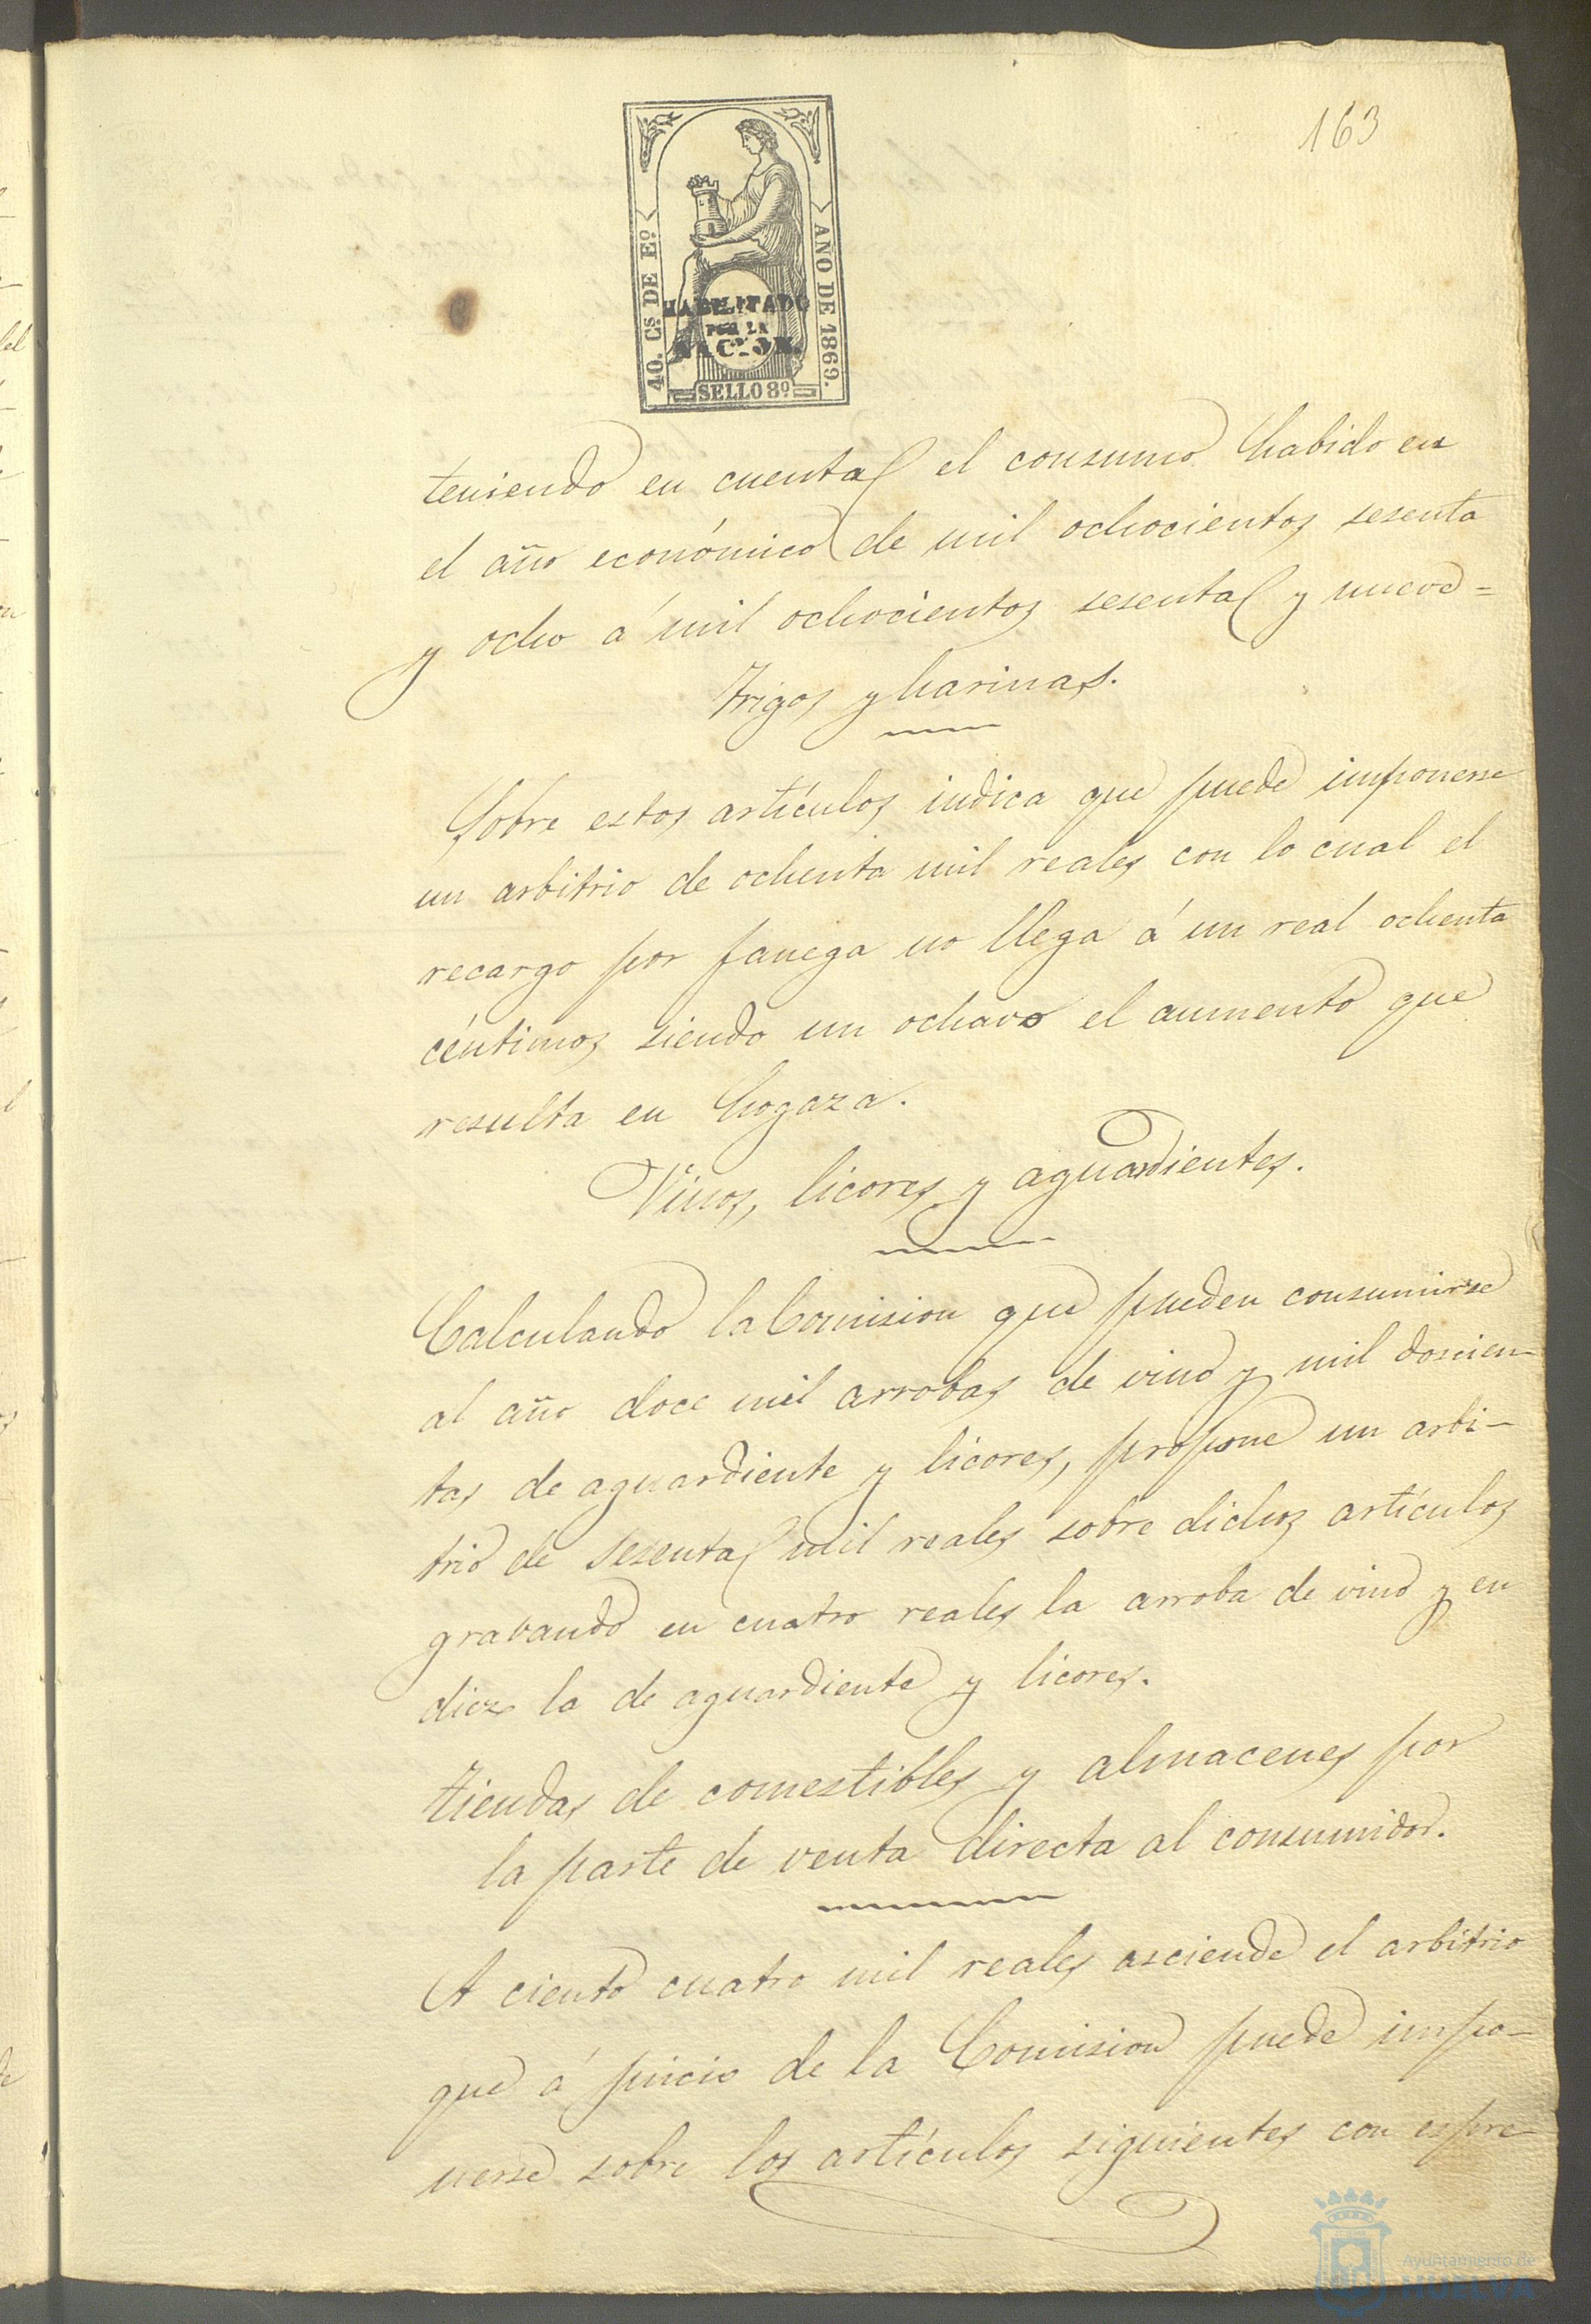 163
40. Cs. DE Eº.
AÑO DE 1869.
HABILITADO
POR LA
NACION.
SELLO 8º
teniendo en cuenta el consumo habido en
el año económico de mil ochocientos sesenta
y ocho á mil ochocientos sesenta y nueve=
Trigos y harinas.
Sobre estos artículos indica que puede imponerse
un arbitrio de ochenta mil reales con lo cual el
recargo por fanega no llega á un real ochenta
céntimos siendo un ochavo el aumento que
resulta en hogaza.
Vinos, licores y aguardientes.
Calculando la Comision que pueden consumirse
al año doce mil arrobas de vino y mil doscien-
tas de aguardiente y licores, propone un arbi-
trio de sesenta mil reales sobre dichos artículos
gravando en cuatro reales la arroba de vino y en
diez la de aguardiente y licores.
Tiendas de comestibles y almacenes por
la parte de venta directa al consumidor.
A ciento cuatro mil reales asciende el arbitrio
que á juicio de la Comision puede impo-
nerse sobre los artículos siguientes con espre-
Ayuntamiento de
HUELVA